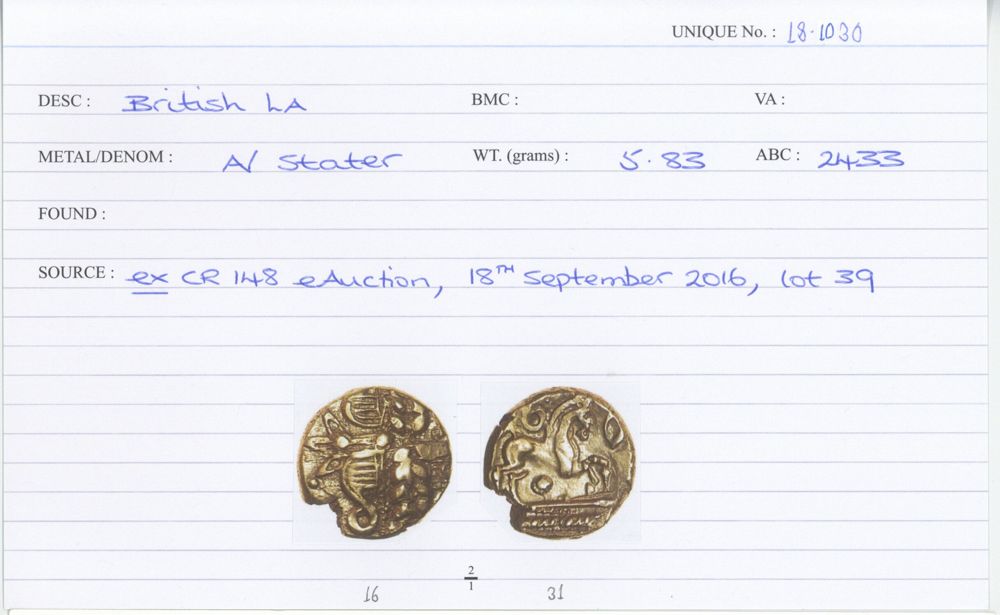 UNIQUE No. : 18·1030
DESC : British LA BMC : VA :
METAL/DENOM : A/ Stater WT. (grams) : 5.83 ABC : 2433
FOUND :
SOURCE : ex CR 148 eAuction, 18TH September 2016, lot 39
2
1
16 31